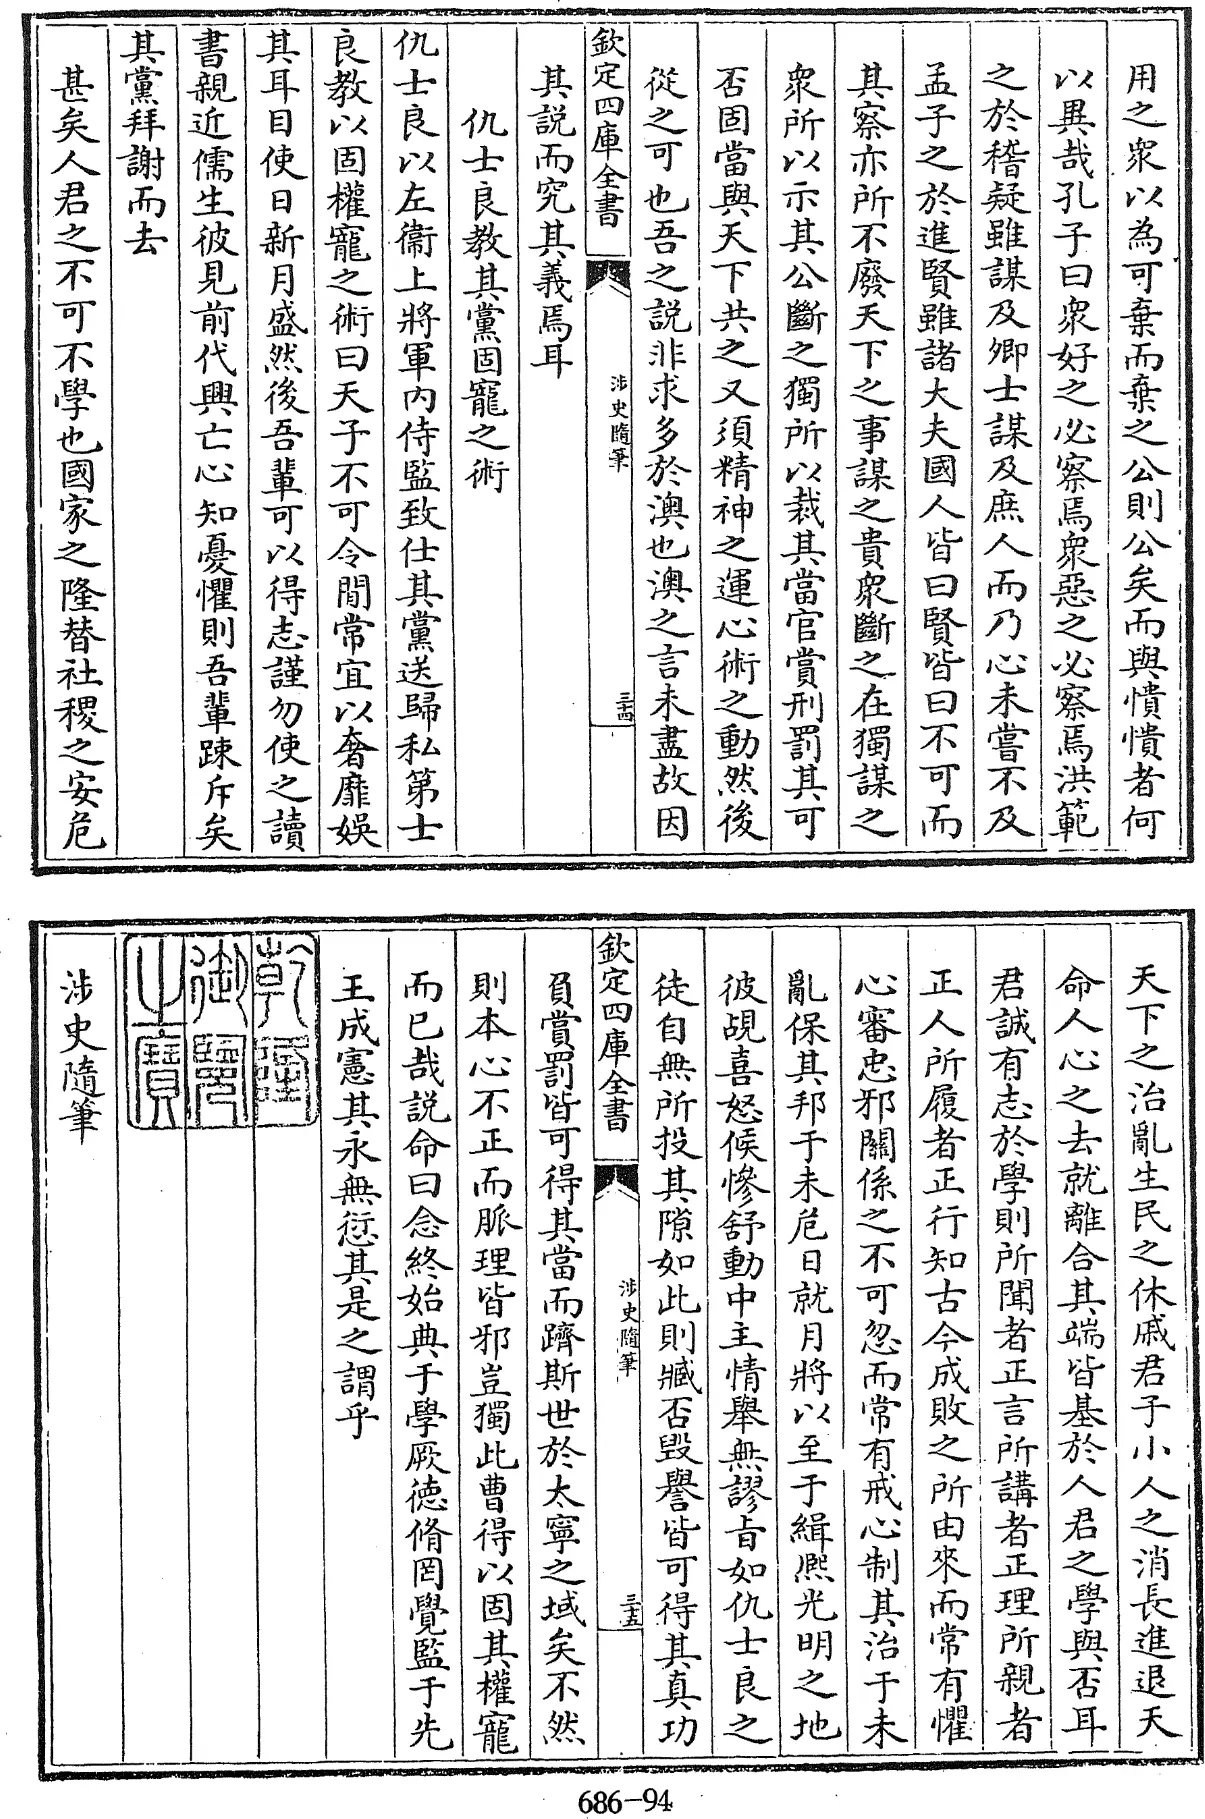 用之衆以為可棄而棄之公則公矣而與憒憒者何
以異哉孔子曰衆好之必察焉衆惡之必察焉洪範
之於稽疑雖謀及卿士謀及庶人而乃心未嘗不及
孟子之於進賢雖諸大夫國人皆曰賢皆曰不可而
其察亦所不廢天下之事謀之貴衆斷之在獨謀之
衆所以示其公斷之獨所以裁其當官賞刑罰其可
否固當與天下共之又須精神之運心術之動然後
從之可也吾之説非求多於澳也澳之言未盡故因
欽定四庫全書
涉史隨筆
三十四
其説而究其義焉耳
仇士良教其黨固寵之術
仇士良以左衞上將軍内侍監致仕其黨送歸私第士
良教以固權寵之術曰天子不可令閒常宜以奢靡娱
其耳目使日新月盛然後吾輩可以得志謹勿使之讀
書親近儒生彼見前代興亡心知憂懼則吾輩踈斥矣
其黨拜謝而去
甚矣人君之不可不學也國家之隆替社稷之安危
天下之治亂生民之休戚君子小人之消長進退天
命人心之去就離合其端皆基於人君之學與否耳
君誠有志於學則所聞者正言所講者正理所親者
正人所履者正行知古今成敗之所由來而常有懼
心審忠邪關係之不可忽而常有戒心制其治于未
亂保其邦于未危日就月將以至于緝熈光明之地
彼覘喜怒候慘舒動中主情舉無謬旨如仇士良之
徒自無所投其隙如此則臧否毁譽皆可得其真功
欽定四庫全書
涉史隨筆
三十五
負賞罰皆可得其當而躋斯世於太寧之域矣不然
則本心不正而脈理皆邪豈獨此曹得以固其權寵
而已哉説命曰念終始典于學厥德脩罔覺監于先
王成憲其永無愆其是之謂乎
乾隆
御覽
之寶
涉史隨筆
686-94